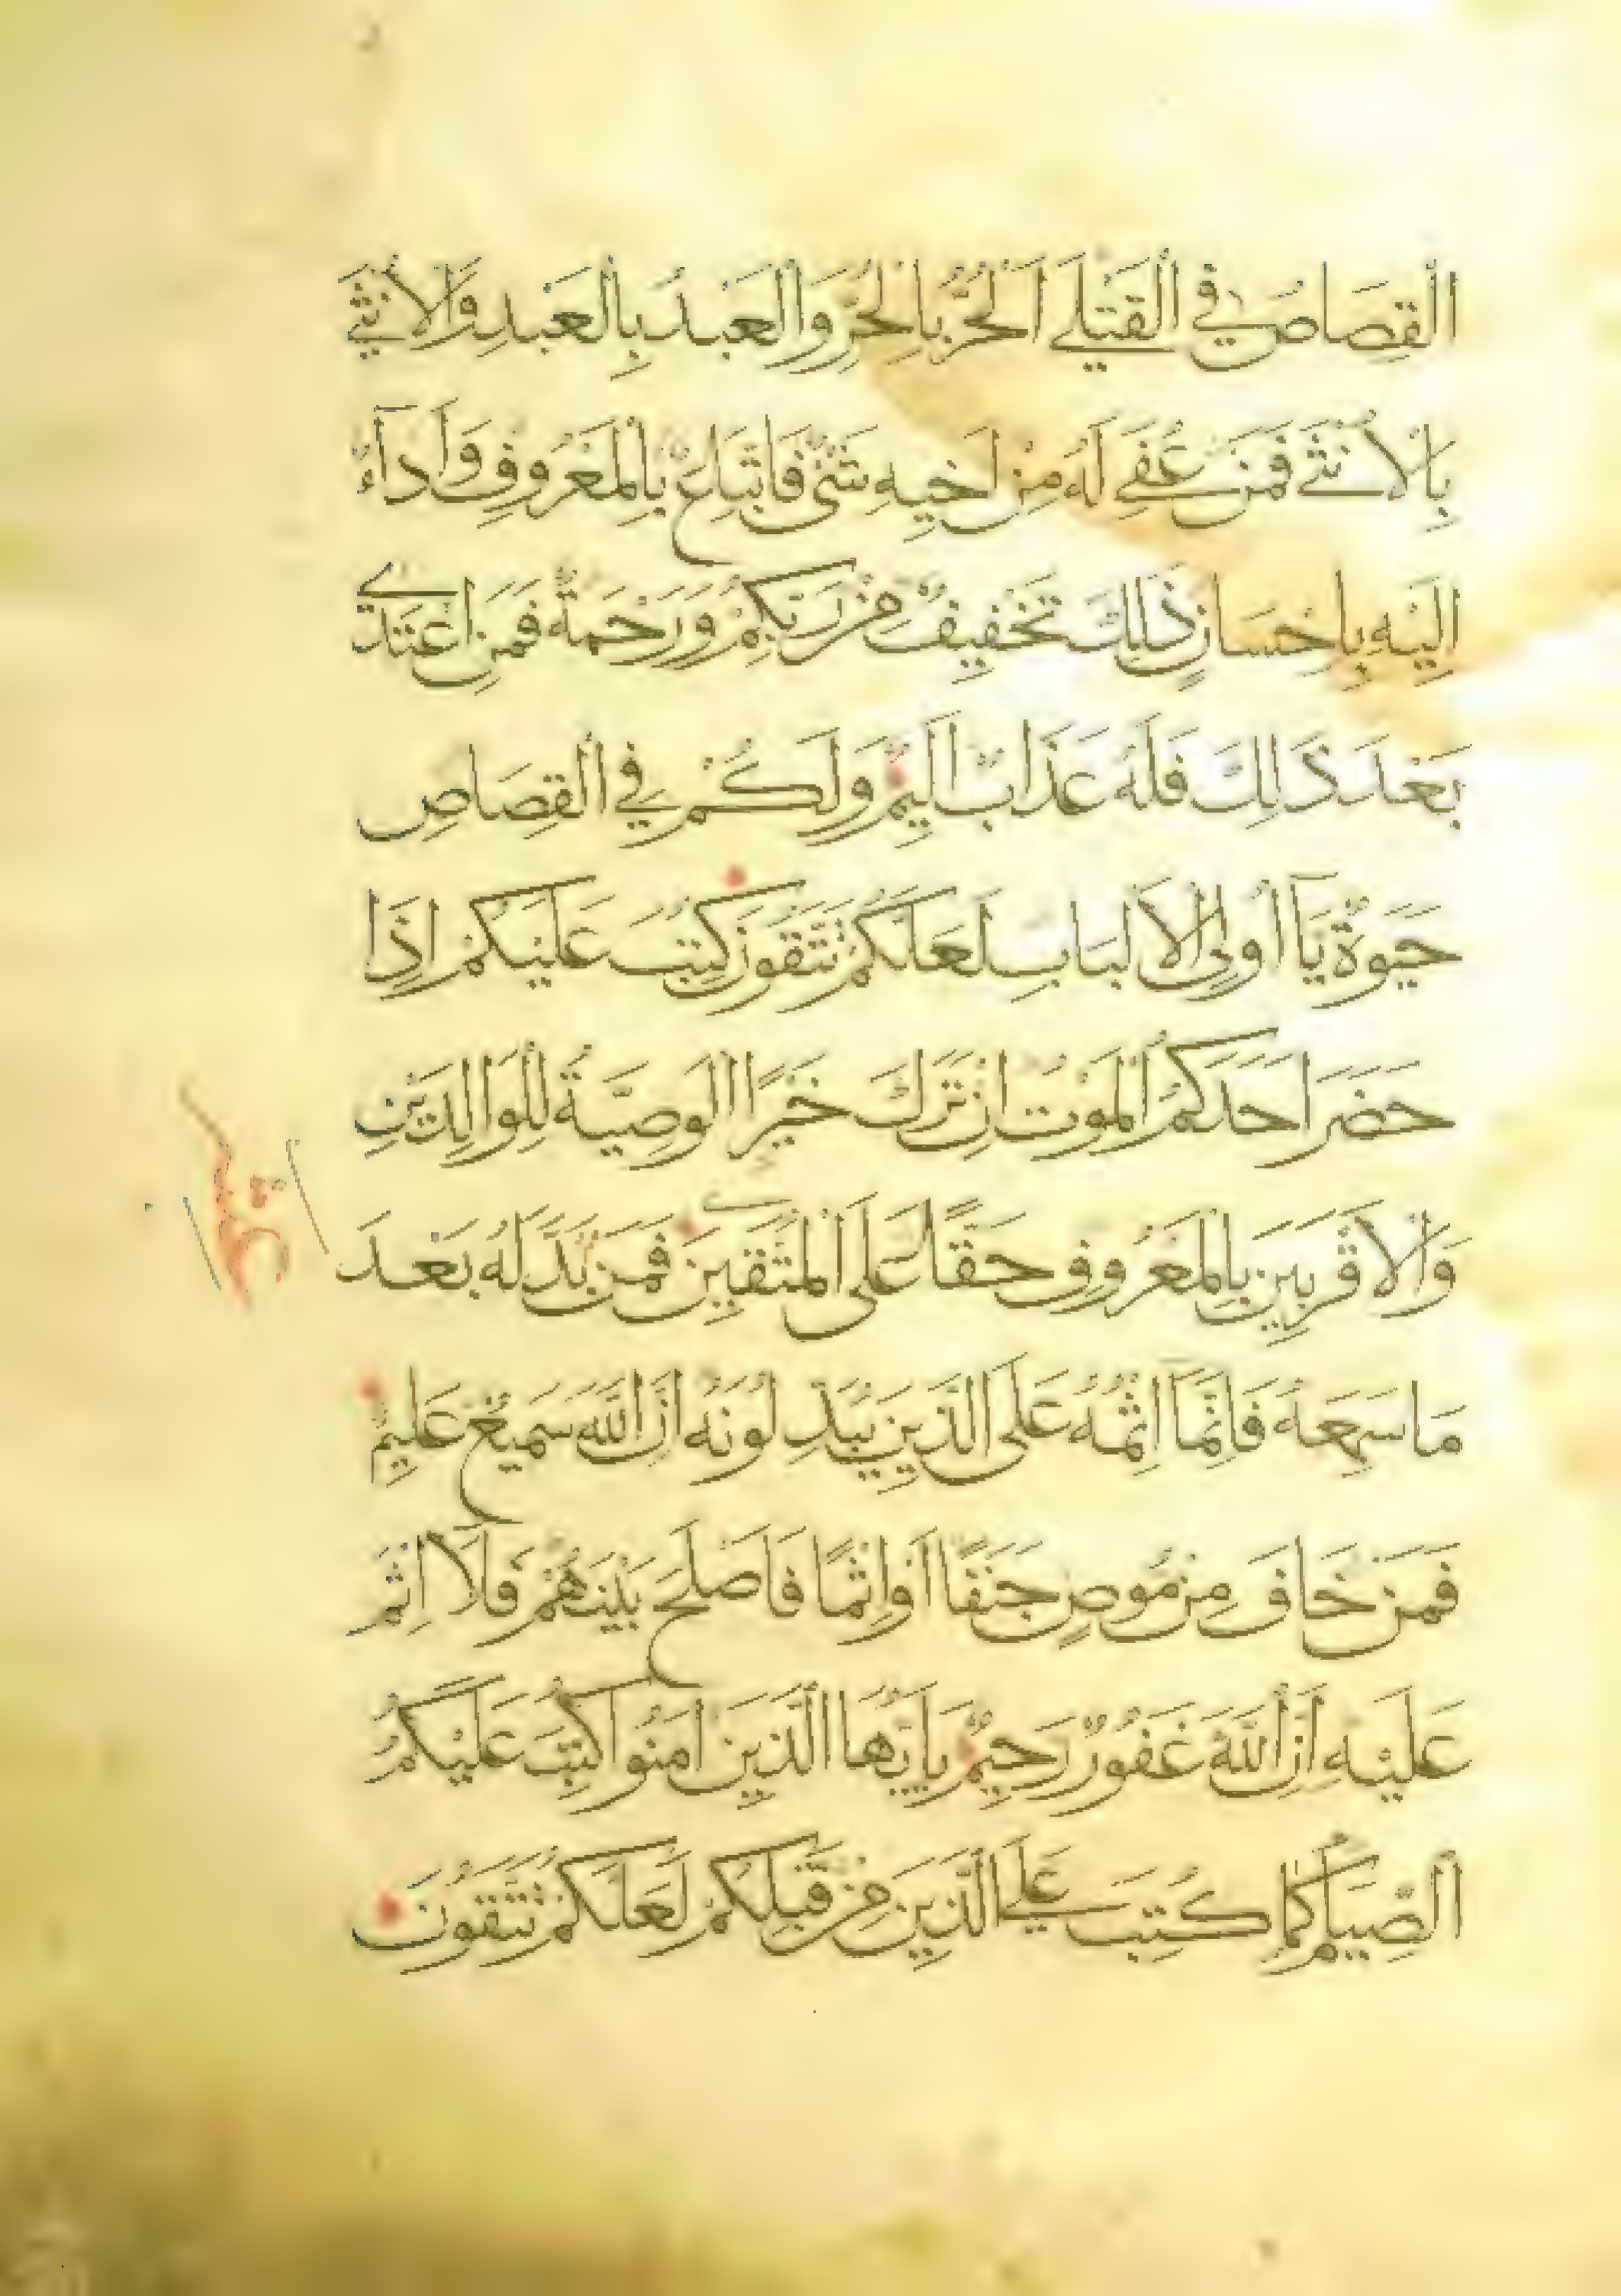 القِصَاصُ فِي القَتْلَى اَلْحُرُّ بِالْحُرِّ وَالْعَبْدُ بِالْعَبْدِ وَالْاُنْثَى
بِالْاُنْثَى فَمَنْ عُفِيَ لَهُ مِنْ اَخِيهِ شَيْءٌ فَاتِّبَاعٌ بِالْمَعْرُوفِ وَاَدَآءٌ
اِلَيْهِ بِاِحْسَانٍ ذٰلِكَ تَخْفِيفٌ مِنْ رَبِّكُمْ وَرَحْمَةٌ فَمَنِ اعْتَدَى
بَعْدَ ذٰلِكَ فَلَهُ عَذَابٌ اَلِيمٌ وَلَكُمْ فِي الْقِصَاصِ
حَيَوةٌ يَآ اُولِى الْاَلْبَابِ لَعَلَّكُمْ تَتَّقُونَ كُتِبَ عَلَيْكُمْ اِذَا
حَضَرَ اَحَدَكُمُ الْمَوْتُ اِنْ تَرَكَ خَيْرًا الْوَصِيَّةُ لِلْوَالِدَيْنِ
وَالْاَقْرَبِينَ بِالْمَعْرُوفِ حَقًّا عَلَى الْمُتَّقِينَ فَمَنْ بَدَّلَهُ بَعْدَ
مَا سَمِعَهُ فَاِنَّمَآ اِثْمُهُ عَلَى الَّذِينَ يُبَدِّلُونَهُ اِنَّ اللّٰهَ سَمِيعٌ عَلِيمٌ
فَمَنْ خَافَ مِنْ مُوصٍ جَنَفًا اَوْ اِثْمًا فَاَصْلَحَ بَيْنَهُمْ فَلَا اِثْمَ
عَلَيْهِ اِنَّ اللّٰهَ غَفُورٌ رَحِيمٌ يَا اَيُّهَا الَّذِينَ اٰمَنُوا كُتِبَ عَلَيْكُمُ
الصِّيَامُ كَمَا كُتِبَ عَلَى الَّذِينَ مِنْ قَبْلِكُمْ لَعَلَّكُمْ تَتَّقُونَ